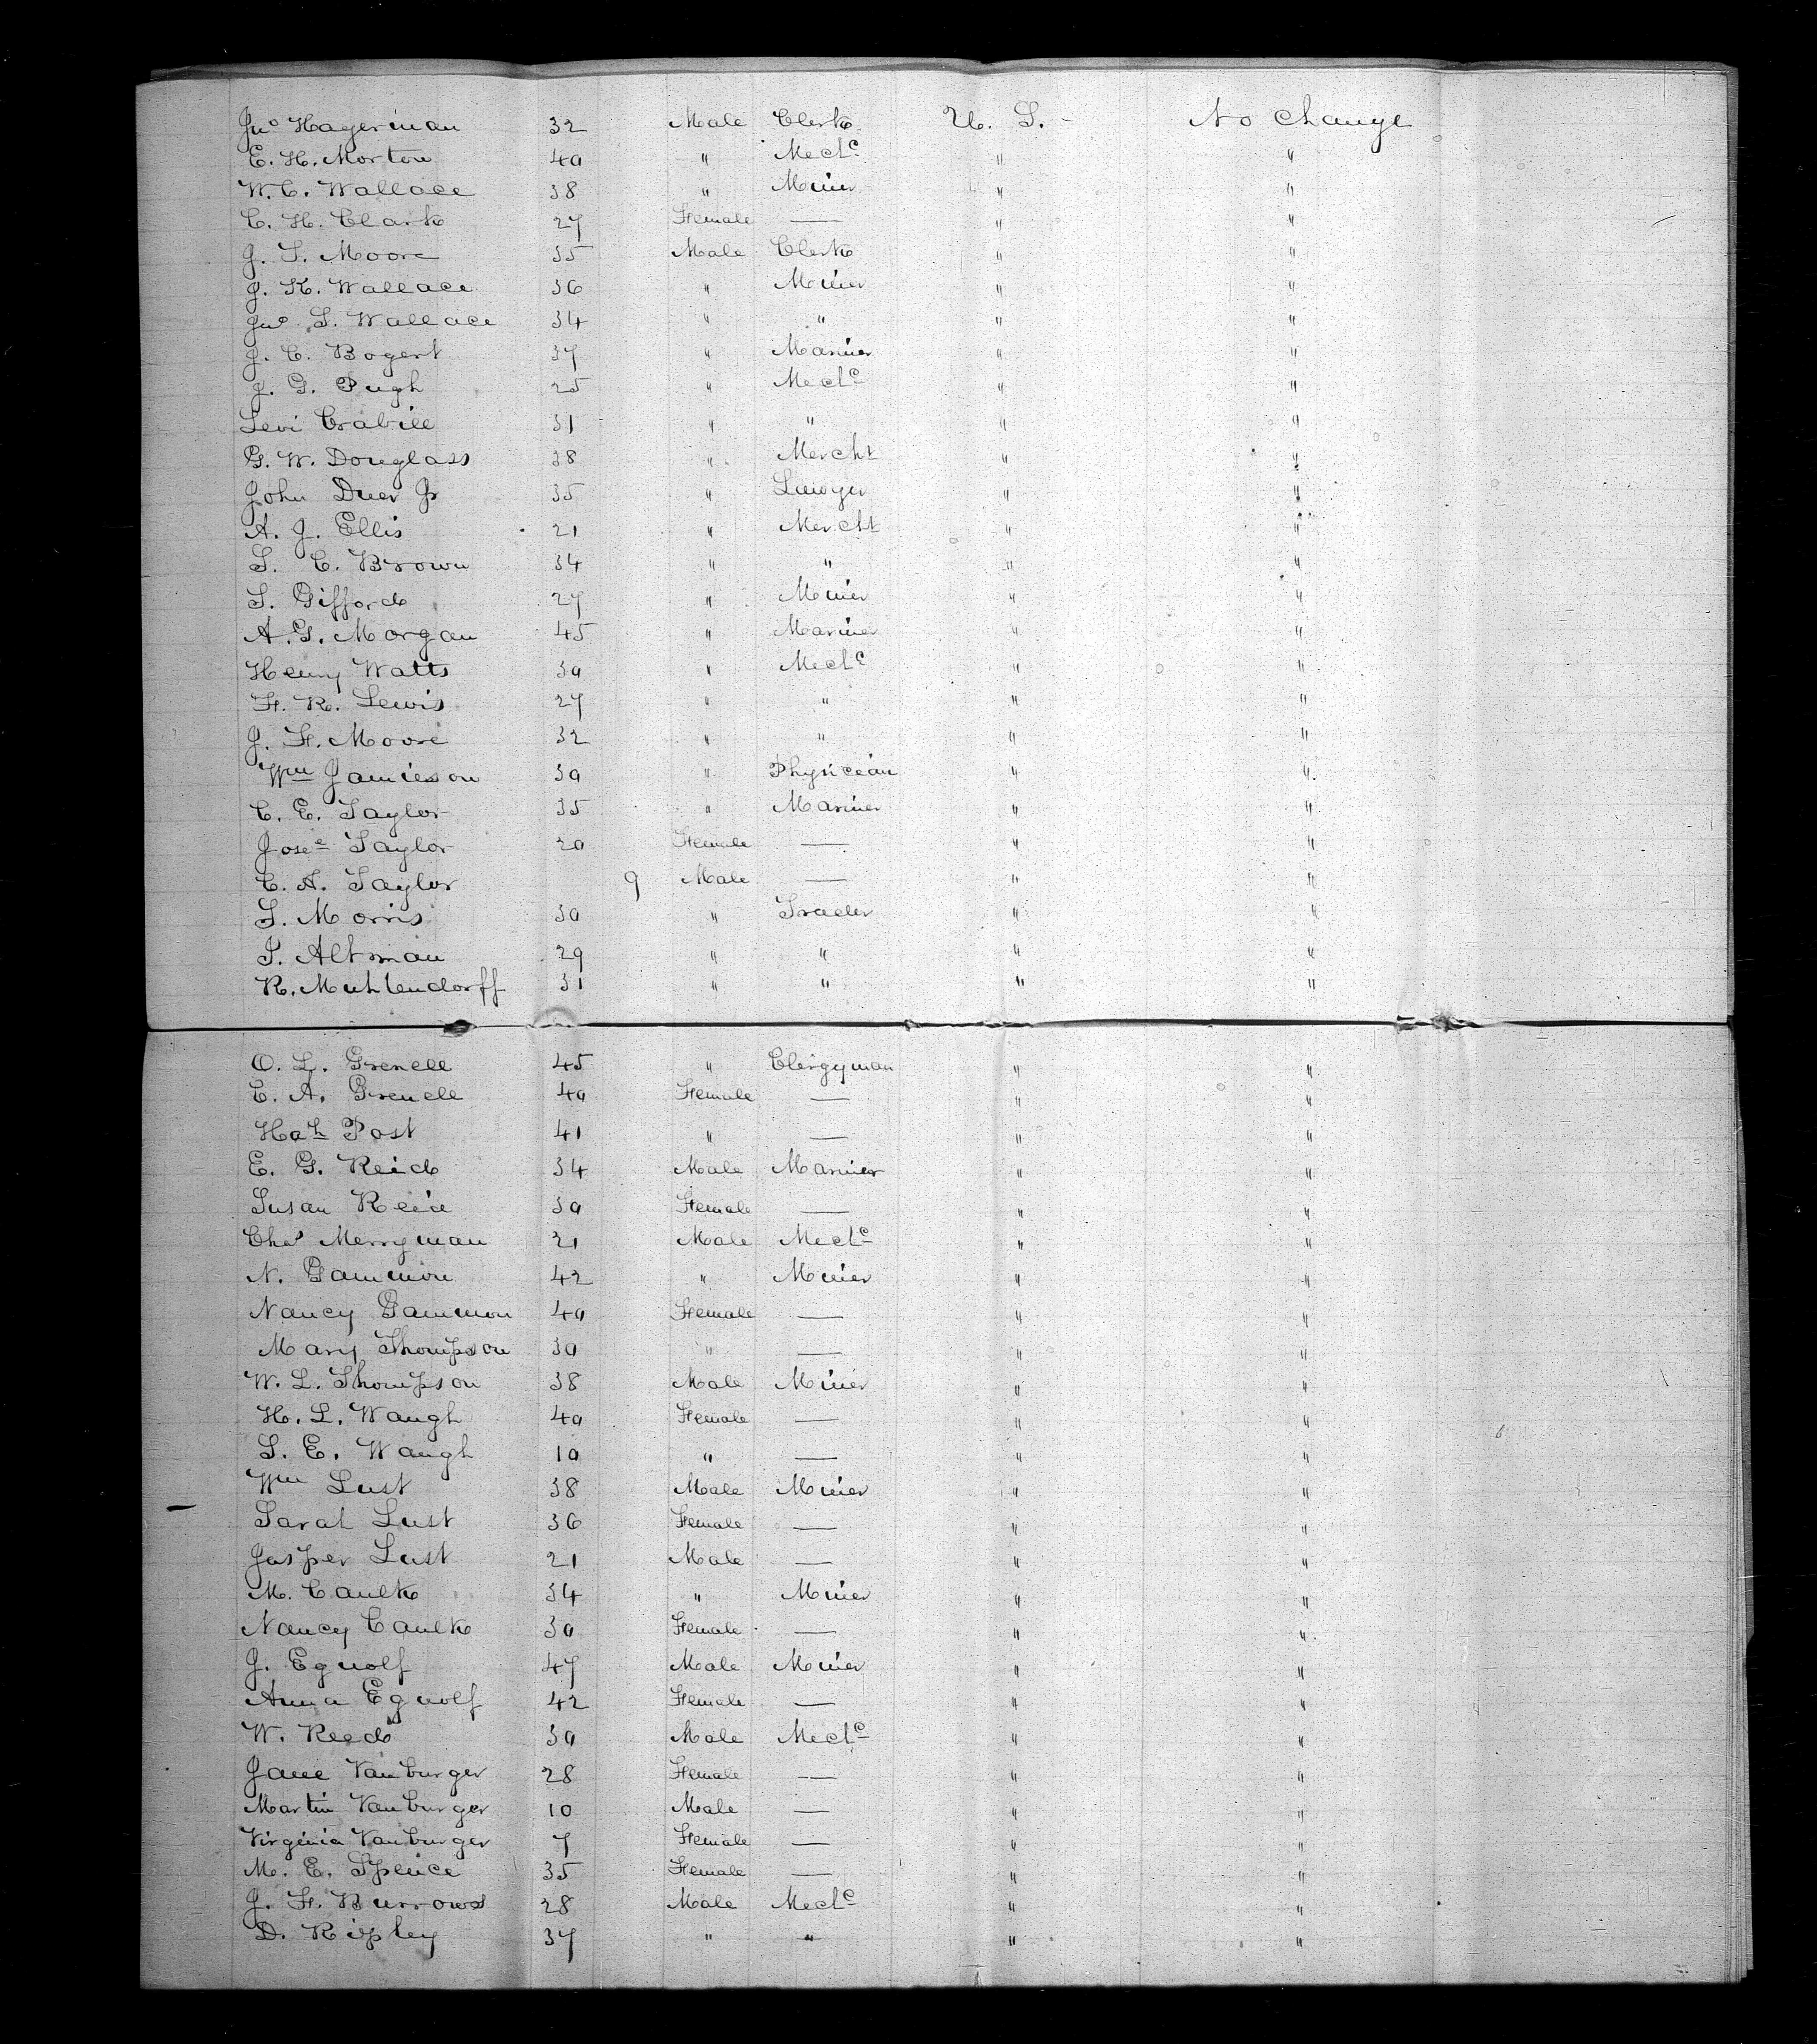 Jno Hagerman 32 Male Clerk U. S. - No change
E. H. Morton 40 " Mechc " "
W. C. Wallace 38 " Miner " "
C. H. Clark 27 Female — " "
J. S. Moore 35 Male Clerk " "
J. K. Wallace 36 " Miner " "
Jno S. Wallace 34 " " " "
J. C. Bogert 37 " Mariner " "
J. G. Pugh 25 " Mechc " "
Levi Crabill 31 " " " "
G. W. Douglass 38 " Mercht " "
John Duer Jr 35 " Lawyer " "
A. J. Ellis 21 " Mercht " "
S. C. Brown 34 " " " "
S. Gifford 27 " Miner " "
A. G. Morgan 45 " Mariner " "
Henry Watts 30 " Mechc " "
F. R. Lewis 27 " " " "
J. F. Moore 32 " " " "
Wm Jamieson 30 " Physician " "
C. E. Taylor 35 " Mariner " "
Josee Taylor 20 Female — " "
C. A. Taylor 9 Male — " "
S. Morris 30 " Trader " "
I. Altman 29 " " " "
R. Muhlendorff 31 " " " "
O. L. Grenell 45 " Clergyman " "
E. A. Grenell 40 Female — " "
Hah Post 41 " — " "
E. G. Reid 34 Male Mariner " "
Susan Reid 30 Female — " "
Chs Merryman 21 Male Mechc " "
N. Gammon 42 " Miner " "
Nancy Gammon 40 Female — " "
Mary Thompson 30 " — " "
W. L. Thompson 38 Male Miner " "
H. L. Waugh 40 Female — " "
S. E. Waugh 10 " — " "
Wm Lust 38 Male Miner " "
Sarah Lust 36 Female — " "
Jasper Lust 21 Male — " "
M. Caulk 34 " Miner " "
Nancy Caulk 30 Female — " "
J. Egnolf 47 Male Miner " "
Anna Egnolf 42 Female — " "
W. Reed 30 Male Mechc " "
Jane Vanburger 28 Female — " "
Martin Vanburger 10 Male — " "
Virginia Vanburger 7 Female — " "
M. E. Spence 35 Female — " "
J. F. Burrows 28 Male Mechc " "
D. Ripley 37 " " " "